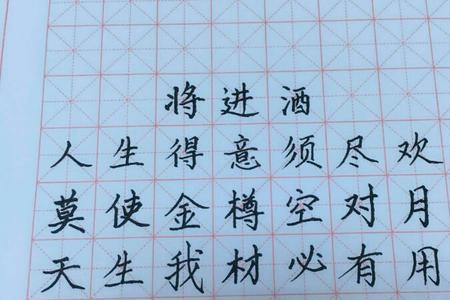 将进酒
人生得意须尽欢
莫使金樽空对月
天生我材必有用